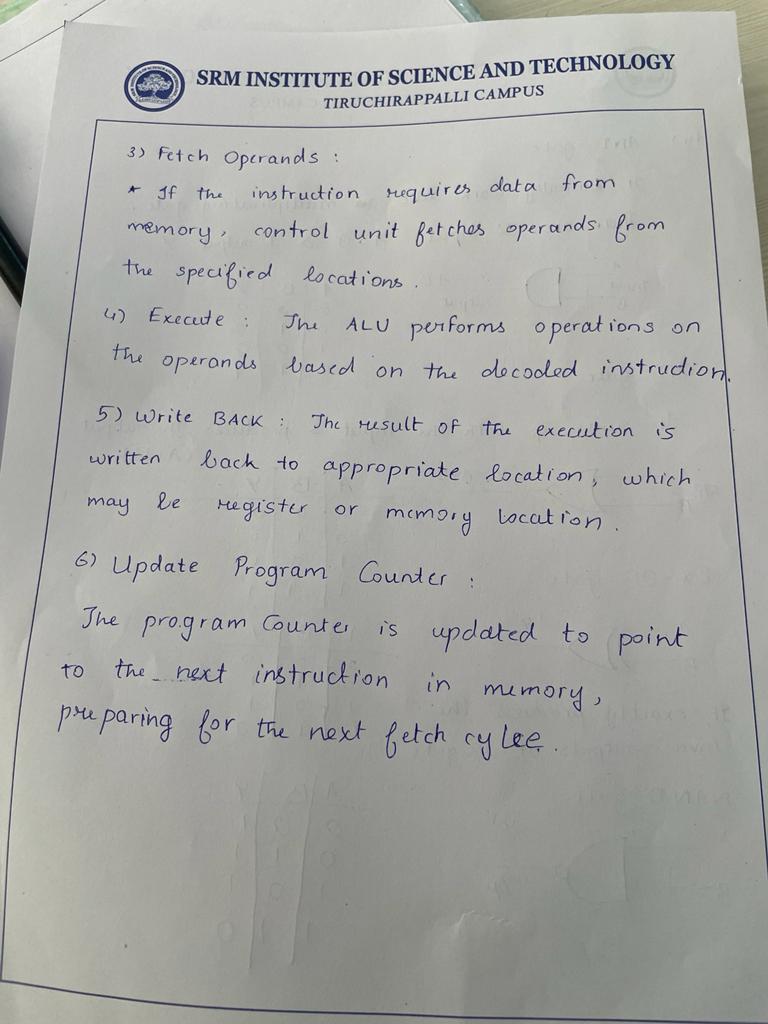 SRM INSTITUTE OF SCIENCE AND TECHNOLOGY
TIRUCHIRAPPALLI CAMPUS
3) Fetch Operands :
* If the instruction requires data from
memory, control unit fetches operands from
the specified locations.
4) Execute : The ALU performs operations on
the operands based on the decoded instruction.
5) Write BACK : The result of the execution is
written back to appropriate location, which
may be register or memory location.
6) Update Program Counter :
The program Counter is updated to point
to the next instruction in memory,
preparing for the next fetch cylce.